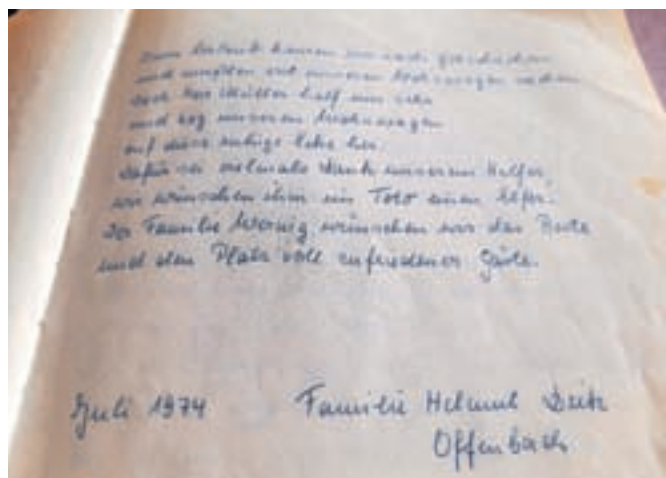 Zum Urlaub kamen wir nach
und mußten mit unserem Wohnwagen
doch Herr Müller half uns sehr
und zog unseren Wohnwagen
auf diese ruhige Ecke her.
Dafür sei vielmals Dank unserem Helfer,
wir wünschen ihm im Toto einen Elfer.
Der Familie wünschen wir das Beste
und den Platz voll zufriedener Gäste.
Juli 1974 Familie Helmut Deitz
Offenbach